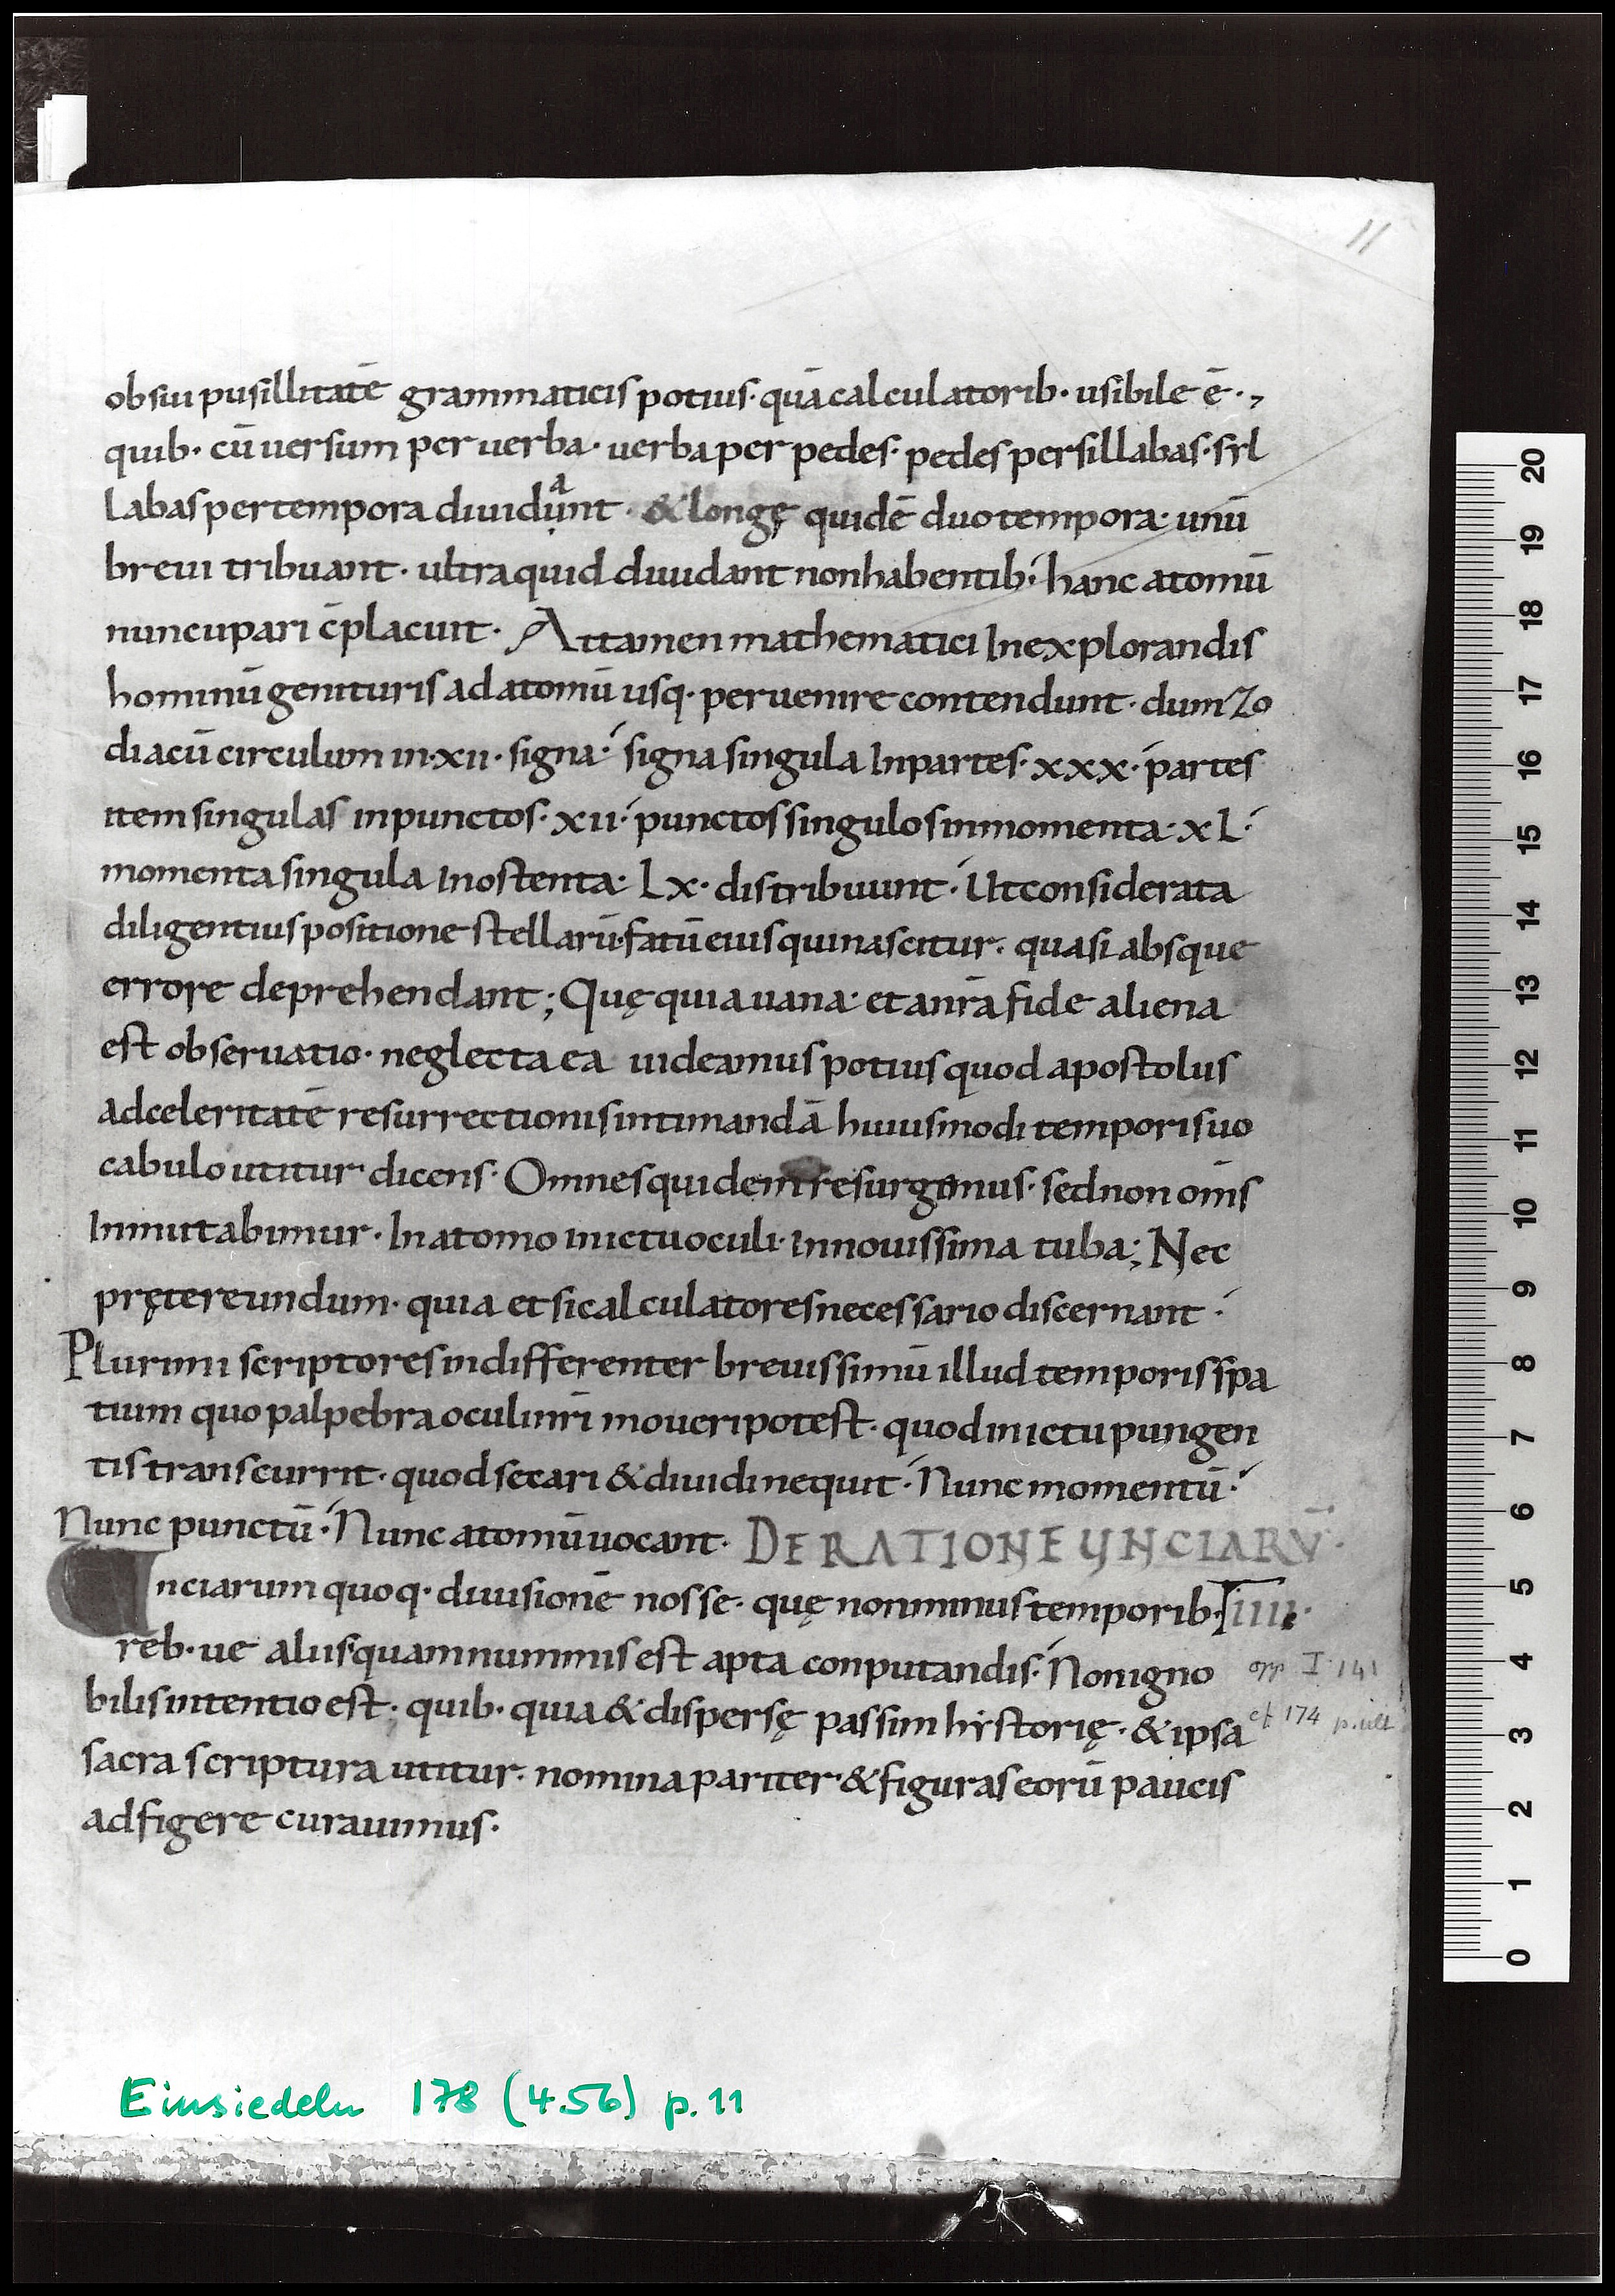 11
ob sui pusillitatē grammaticis potius· quā calculatorib· usibile ē·,
quib· cū uersum per uerba· uerba per pedes· pedes per sillabas· syl
labas per tempora diuidunt a · & longę quidē duo tempora· unū
breui tribuant· ultra quid diuidant non habentib· hanc atomū
nuncupari c̄placuit· Attamen mathematici In explorandis
hominū genituris ad atomū usq· peruenire contendunt· dum Zo
diacū circulum in·xii· signa· signa singula In partes· xxx· partes
item singulas in punctos· xii· punctos singulos in momenta· xL·
momenta singula In ostenta· Lx· distribuunt· Ut considerata
diligentius positione stellarū· fatū eius qui nascitur· quasi absque
errore deprehendant; Quę quia uana· et a nr̄a fide aliena
est obseruatio· neglecta ea uideamus potius quod apostolus
ad celeritatē resurrectionis intimandā huiusmodi temporis uo
cabulo utitur dicens· Omnes quidem resurgemus· sed non om̄s
Inmutabimur· In atomo in ictu oculi· In nouissima tuba; Nec
prętereundum· quia etsi calculatores necessario discernant·
Plurimi scriptores indifferenter breuissimū illud temporis spa
tium quo palpebra oculi nr̄i moueri potest· quod in ictu pungen
tis transcurrit· quod secari & diuidi nequit· Nunc momentū·
Nunc punctū· Nunc atomū uocant· DE RATIONE UNCIARŪ·
Unciarum quoq· diuisionē nosse· quę non minus temporib· iiii·
reb·ue aliis quam nummis est apta conputandis· Non igno
opp I 141
bilis intentio est· quib· quia & dispersę passim hystorię· & ipsa
et 174 p. ult
sacra scriptura utitur· nomina pariter· & figuras eorū paucis
adfigere curauimus·
Einsiedeln 178 (4.56) p. 11
20
19
18
17
16
15
14
13
12
11
10
9
8
7
6
5
4
3
2
1
0